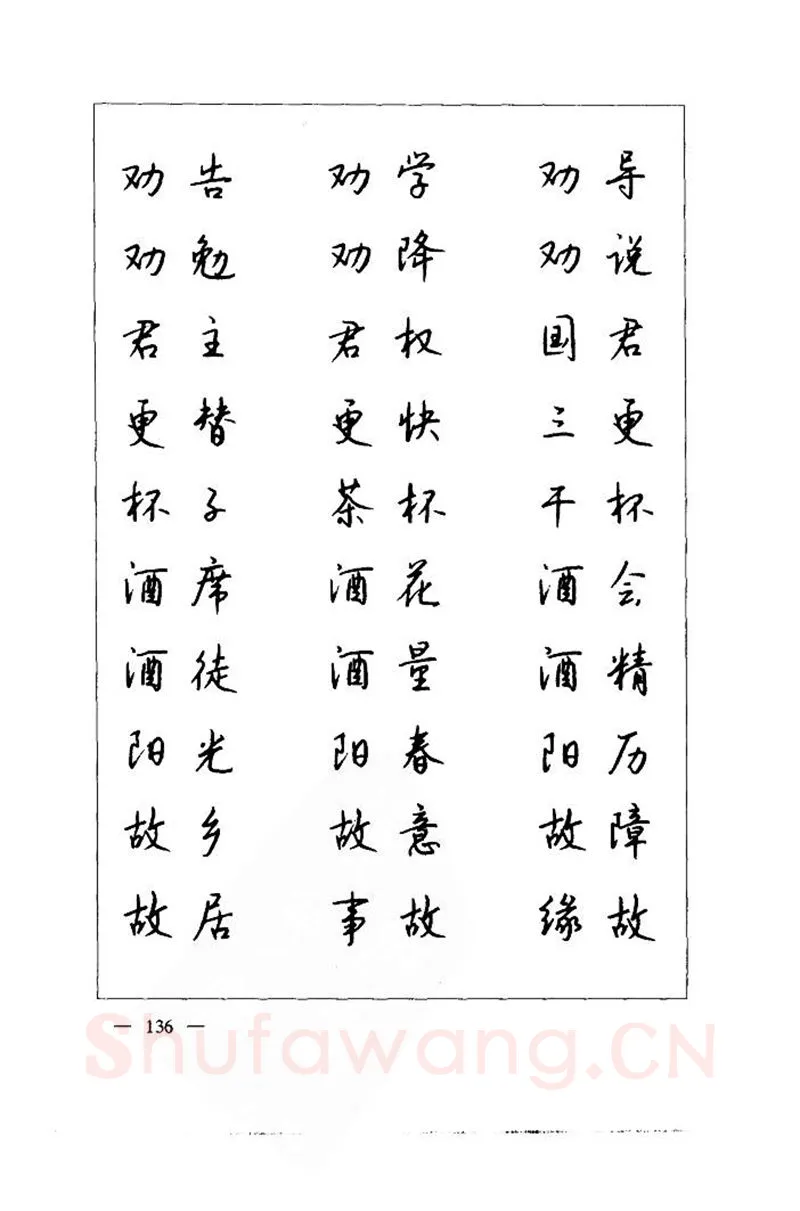 劝告 劝学 劝导
劝勉 劝降 劝说
君主 君权 国君
更替 更快 三更
杯子 茶杯 干杯
酒席 酒花 酒会
酒徒 酒量 酒精
阳光 阳春 阳历
故乡 故意 故障
故居 事故 缘故
— 136 —
Shufawang.CN